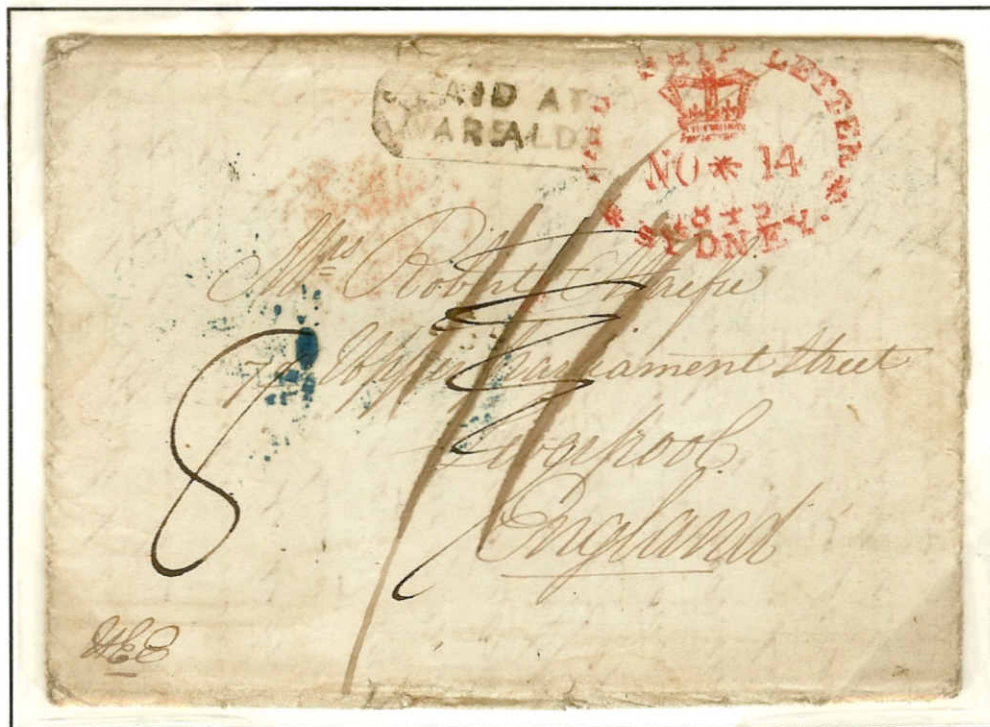 PAID AT
WARIALDA
PAID SHIP LETTER
NO * 14
184
SYDNEY
Mrs Robert
Upper Parliament Street
Liverpool
England
8